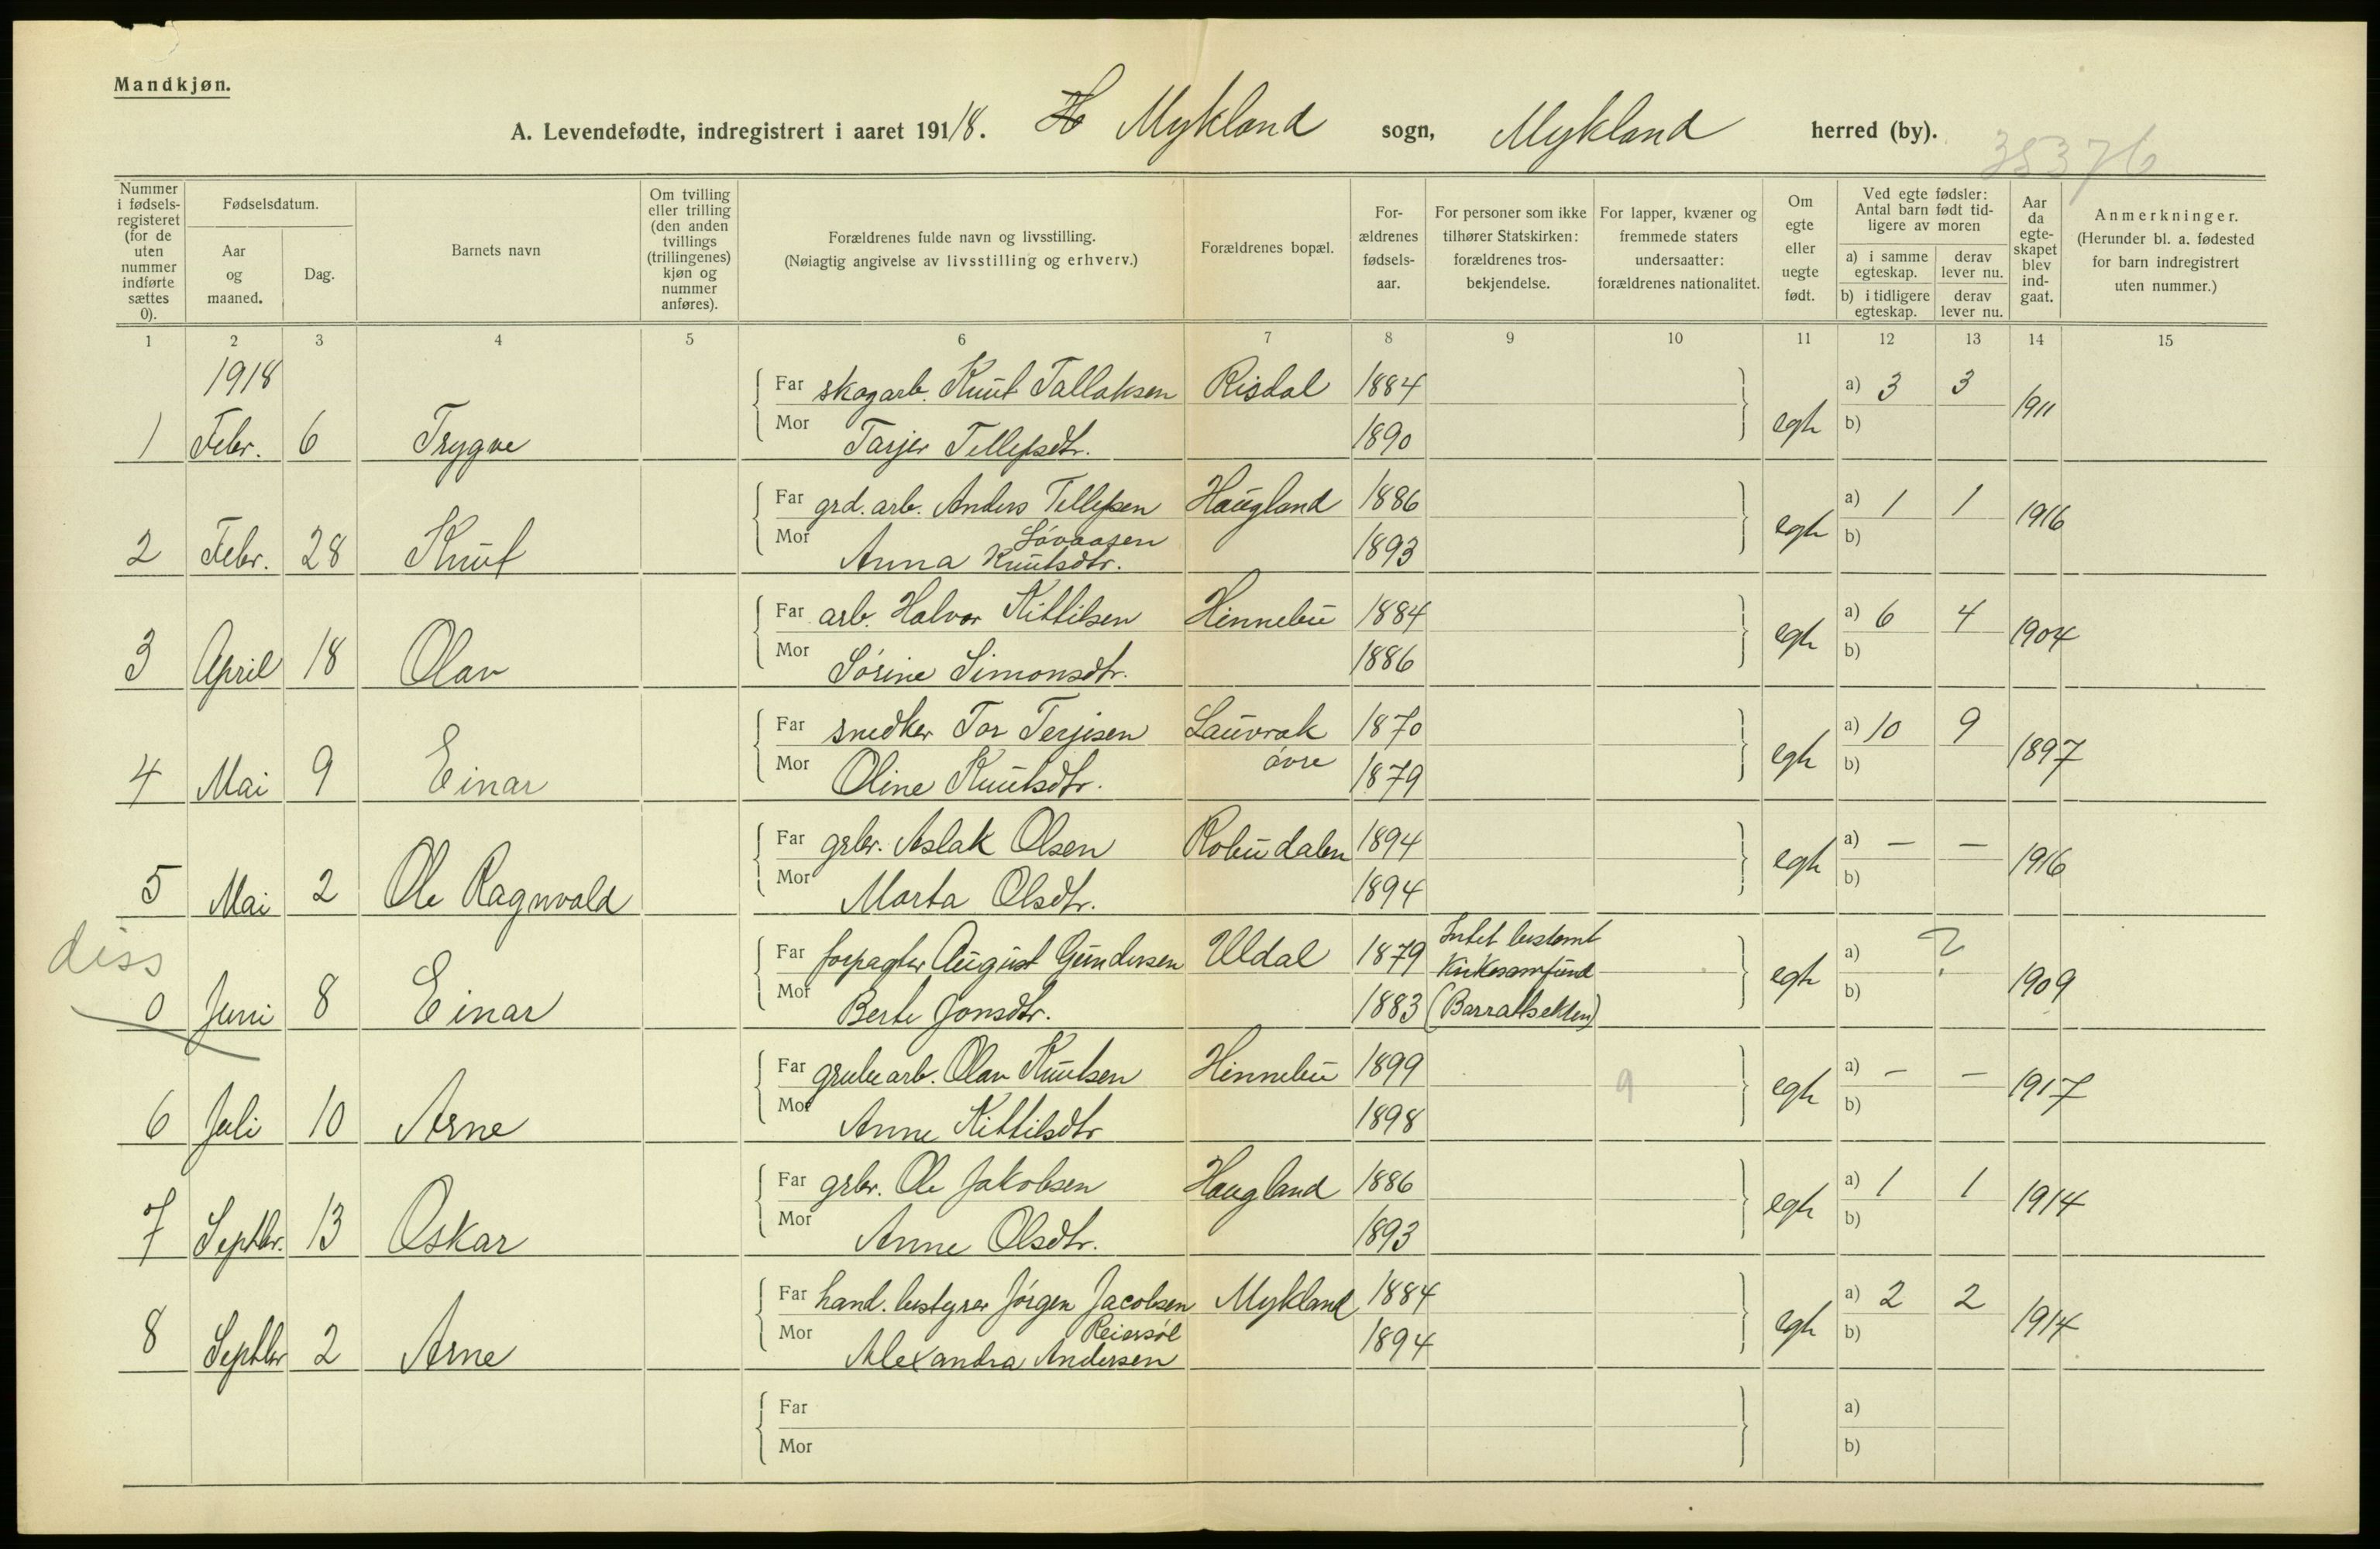 Mandkjøn.
A. Levendefødte, indregistrert i aaret 1918. Mykland sogn, Mykland herred (by).
35376
Nummer i fødsels-registeret (for de uten nummer indførte sættes 0).
Fødselsdatum.
Aar og maaned.
Dag.
Barnets navn
Om tvilling eller trilling (den anden tvillings (trillingenes) kjøn og nummer anføres).
Forældrenes fulde navn og livsstilling.
(Nøiagtig angivelse av livsstilling og erhverv.)
Forældrenes bopæl.
For-ældrenes fødsels-aar.
For personer som ikke tilhører Statskirken: forældrenes tros-bekjendelse.
For lapper, kvæner og fremmede staters undersaatter: forældrenes nationalitet.
Om egte eller uegte født.
Ved egte fødsler: Antal barn født tid-ligere av moren
a) i samme egteskap. derav lever nu.
b) i tidligere egteskap. derav lever nu.
Aar da egte-skapet blev ind-gaat.
Anmerkninger.
(Herunder bl. a. fødested for barn indregistrert uten nummer.)
1 2 3 4 5 6 7 8 9 10 11 12 13 14 15
1918
Far skogarb. Knut Tallaksen Risdal 1884 a) 3 3
1 Febr. 6 Trygve Mor Tarjer Tellefsdtr. 1890 egte b) 1911
Far grd. arb. Anders Tellefsen Haugland 1886 a) 1 1
Løvaasen
2 Febr. 28 Knut Mor Anna Knutsdtr. 1893 egte b) 1916
Far arb. Halvor Kittilsen Hinnebu 1884 a) 6 4
3 April 18 Olav Mor Sørine Simonsdtr. 1886 egte b) 1904
Far snedker Tor Terjesen Lauvrak 1870 a) 10 9
4 Mai 9 Einar Mor Oline Knutsdtr. øvre 1879 egte b) 1897
Far grbr. Aslak Olsen Robudalen 1894 a) — —
5 Mai 2 Ole Ragnvald Mor Marta Olsdtr. 1894 egte b) 1916
diss
Far forpagter August Gundersen Uldal 1879 Intet bestemt Kirkesamfund a) ?
0 Juni 8 Einar Mor Berte Jonsdtr. 1883 (Barrattsekten) egte b) 1909
Far grubearb. Olav Knutsen Hinnebu 1899 9 a) — —
6 Juli 10 Arne Mor Anne Kittilsdtr 1898 egte b) 1917
Far grbr. Ole Jakobsen Haugland 1886 a) 1 1
7 Septbr. 13 Oskar Mor Anne Olsdtr. 1893 egte b) 1914
Far hand. bestyrer Jørgen Jacobsen Mykland 1884 a) 2 2
Reiersøl
8 Septbr 2 Arne Mor Alexandra Andersen 1894 egte b) 1914
Far a)
Mor b)